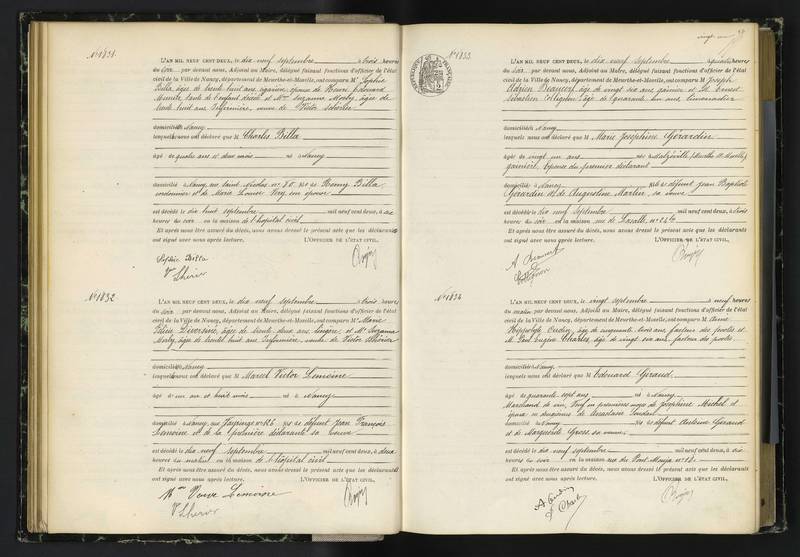 N° 1831.
L'AN MIL NEUF CENT DEUX, le dix neuf septembre à trois heures
du soir par devant nous, Adjoint au Maire, délégué faisant fonctions d'officier de l'état
civil de la Ville de Nancy, département de Meurthe-et-Moselle, ont comparu Mᵉ Sophie
Billa, âgée de trente huit ans, épouse de Henri Edouard
et Mᵐᵉ Suzanne Morby, âgée de
trente huit ans, infirmière, veuve de Victor
domiciliés à Nancy
lesquels nous ont déclaré que M Charles Billa
âgé de quatre ans et deux mois né à Nancy
domicilié à Nancy, rue Saint Nicolas n° 80 fils de Remy Billa,
cordonnier et de Marie Louise Very, son épouse
est décédé le dix huit septembre mil neuf cent deux, à six
heures du soir en la maison de l'hôpital civil
Et après nous être assuré du décès, nous avons dressé le présent acte que les déclarants
ont signé avec nous après lecture. L'OFFICIER DE L'ÉTAT CIVIL,
Sophie Billa
N° 1832
L'AN MIL NEUF CENT DEUX, le dix neuf septembre à trois heures
du soir par devant nous, Adjoint au Maire, délégué faisant fonctions d'officier de l'état
civil de la Ville de Nancy, département de Meurthe-et-Moselle, ont comparu Mᵉ Marie
âgée de trente deux ans, lingère, et Mᵉ Suzanne
Morby, âgée de trente huit ans, infirmière, veuve de Victor
domiciliés à Nancy
lesquels nous ont déclaré que M Marcel Victor Lemoine
âgé de un an et huit mois né à Nancy
domicilié à Nancy, rue n° 126 fils de défunt Jean François
Lemoine et de la première déclarante sa veuve
est décédé le dix neuf septembre mil neuf cent deux, à deux
heures du matin en la maison de l'hôpital civil
Et après nous être assuré du décès, nous avons dressé le présent acte que les déclarants
ont signé avec nous après lecture. L'OFFICIER DE L'ÉTAT CIVIL,
Veuve Lemoine
N° 1833.
L'AN MIL NEUF CENT DEUX, le dix neuf septembre à quatre heures
du soir par devant nous, Adjoint au Maire, délégué faisant fonctions d'officier de l'état
civil de la Ville de Nancy, département de Meurthe-et-Moselle, ont comparu M Joseph
Adrien âgé de vingt six ans, gainier et M. Ernest
Sébastien âgé de quarante un ans, limonadier
domiciliés à Nancy
lesquels nous ont déclaré que M Marie Joséphine Gérardin
âgé de vingt un ans né à Malzéville, (Meurthe et Moselle),
gainière, épouse du premier déclarant
domicilié à Nancy fille de défunt Jean Baptiste
Gérardin et de Augustine Martin, sa veuve
est décédé le dix neuf septembre mil neuf cent deux, à trois
heures du soir en la maison rue de Lasalle, n°
Et après nous être assuré du décès, nous avons dressé le présent acte que les déclarants
ont signé avec nous après lecture. L'OFFICIER DE L'ÉTAT CIVIL,
N° 1834
L'AN MIL NEUF CENT DEUX, le vingt septembre à neuf heures
du matin par devant nous, Adjoint au Maire, délégué faisant fonctions d'officier de l'état
civil de la Ville de Nancy, département de Meurthe-et-Moselle, ont comparu M
Hippolyte âgé de cinquante trois ans, facteur des postes et
M. Paul Eugène Charles, âgé de vingt six ans, facteur des postes
domiciliés à Nancy
lesquels nous ont déclaré que M Edouard Giraud
âgé de quarante sept ans né à Nancy
Marchand de vin, veuf en premières noces de Joséphine Michel et
époux en deuxièmes de Anastasie
domicilié à Nancy fils de défunt Antoine Giraud
et de Marguerite Gross, sa veuve
est décédé le dix neuf septembre mil neuf cent deux, à dix
heures du soir en la maison rue du Pont Mouja n°
Et après nous être assuré du décès, nous avons dressé le présent acte que les déclarants
ont signé avec nous après lecture. L'OFFICIER DE L'ÉTAT CIVIL,